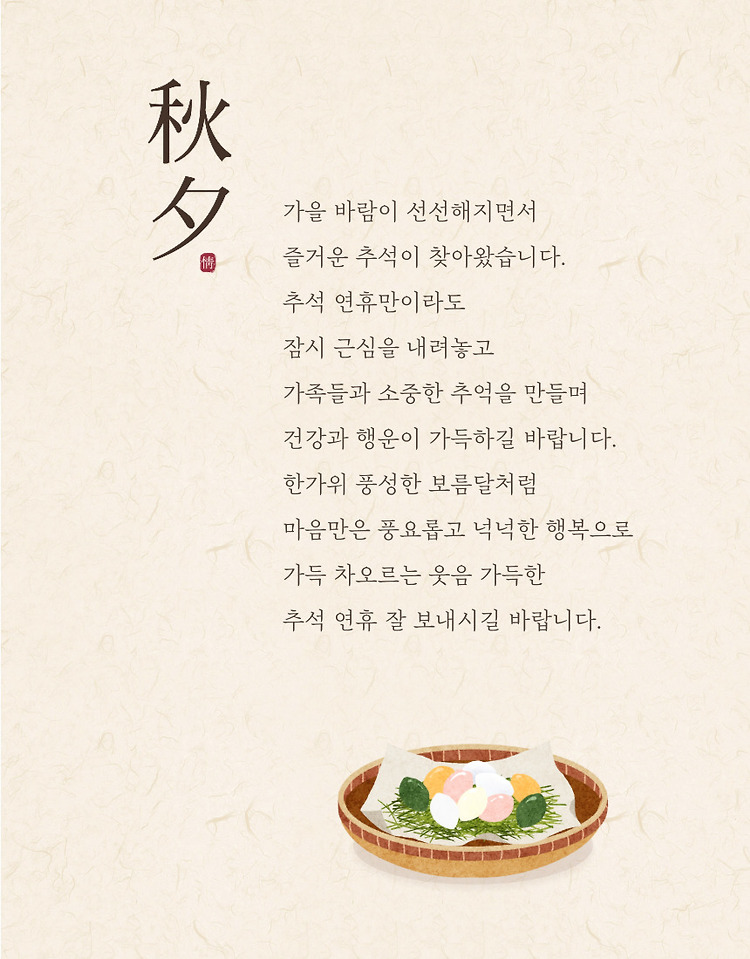 秋夕
情
가을 바람이 선선해지면서
즐거운 추석이 찾아왔습니다.
추석 연휴만이라도
잠시 근심을 내려놓고
가족들과 소중한 추억을 만들며
건강과 행운이 가득하길 바랍니다.
한가위 풍성한 보름달처럼
마음만은 풍요롭고 넉넉한 행복으로
가득 차오르는 웃음 가득한
추석 연휴 잘 보내시길 바랍니다.